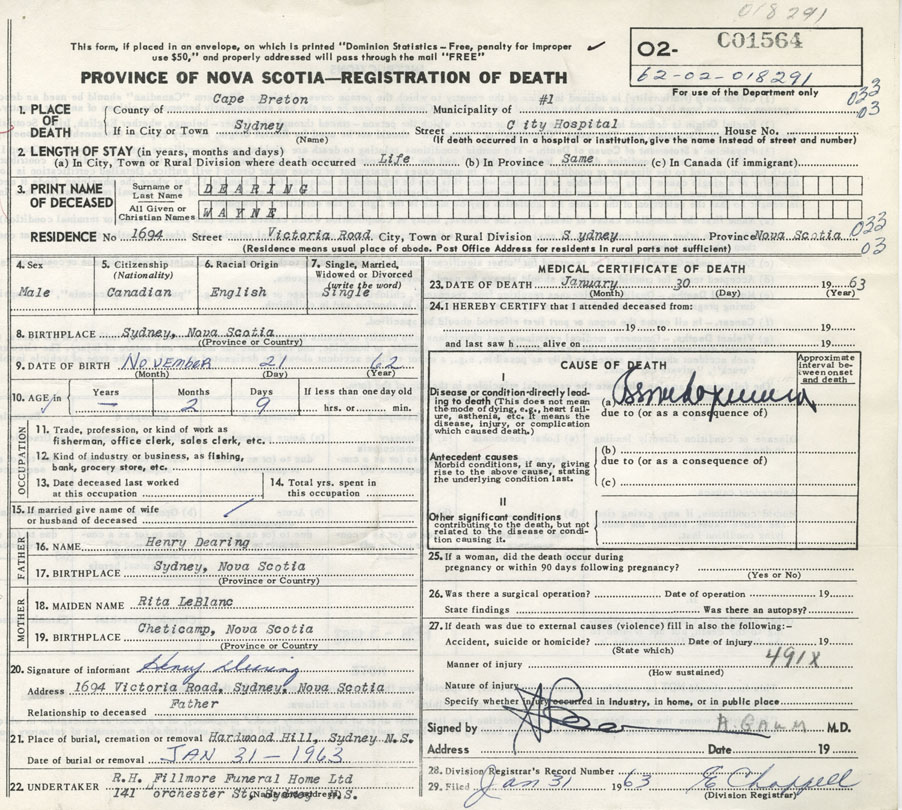 018291
This form, if placed in an envelope, on which is printed "Dominion Statistics – Free, penalty for improper
use $50," and properly addressed will pass through the mail "FREE"
02- C01564
62-02-018291
For use of the Department only
PROVINCE OF NOVA SCOTIA—REGISTRATION OF DEATH
033
03
1. PLACE OF DEATH County of Cape Breton Municipality of #1
If in City or Town Sydney Street City Hospital House No.
(Name) (If death occurred in a hospital or institution, give the name instead of street and number)
2. LENGTH OF STAY (in years, months and days)
(a) In City, Town or Rural Division where death occurred Life (b) In Province Same (c) In Canada (if immigrant)
3. PRINT NAME OF DECEASED Surname or Last Name DEARING
All Given or Christian Names WAYNE
RESIDENCE No 1694 Street Victoria Road City, Town or Rural Division S ydney Province Nova Scotia 033
03
(Residence means usual place of abode. Post Office Address for residents in rural parts not sufficient)
4. Sex Male
5. Citizenship (Nationality) Canadian
6. Racial Origin English
7. Single, Married, Widowed or Divorced (write the word) Single
8. BIRTHPLACE Sydney, Nova Scotia
(Province or Country)
9. DATE OF BIRTH November 21 62
(Month) (Day) (Year)
10. AGE in Years – Months 2 Days 9 If less than one day old hrs. or min.
OCCUPATION
11. Trade, profession, or kind of work as fisherman, office clerk, sales clerk, etc.
12. Kind of industry or business, as fishing, bank, grocery store, etc.
13. Date deceased last worked at this occupation
14. Total yrs. spent in this occupation
15. If married give name of wife or husband of deceased
FATHER
16. NAME Henry Dearing
17. BIRTHPLACE Sydney, Nova Scotia
(Province or Country)
MOTHER
18. MAIDEN NAME Rita LeBlanc
19. BIRTHPLACE Cheticamp, Nova Scotia
(Province or Country
20. Signature of informant Henry Dearing
Address 1694 Victoria Road, Sydney, Nova Scotia
Relationship to deceased Father
21. Place of burial, cremation or removal Hardwood Hill, Sydney N.S.
Date of burial or removal JAN 31 – 1963
22. UNDERTAKER R.H. Fillmore Funeral Home Ltd
141 orchester St, Sydney N.S.
(Name and address)
MEDICAL CERTIFICATE OF DEATH
23. DATE OF DEATH January 30 1963
(Month) (Day) (Year)
24. I HEREBY CERTIFY that I attended deceased from:
19 to 19
and last saw h alive on 19
CAUSE OF DEATH
Approximate interval between onset and death
I
Disease or condition directly leading to death (This does not mean the mode of dying, e.g., heart failure, asthenia, etc. It means the disease, injury, or complication which caused death.)
(a)
due to (or as a consequence of)
Antecedent causes
Morbid conditions, if any, giving rise to the above cause, stating the underlying condition last.
(b)
due to (or as a consequence of)
(c)
II
Other significant conditions
contributing to the death, but not related to the disease or condition causing it.
25. If a woman, did the death occur during
pregnancy or within 90 days following pregnancy?
(Yes or No)
26. Was there a surgical operation? Date of operation 19
State findings Was there an autopsy?
27. If death was due to external causes (violence) fill in also the following:–
Accident, suicide or homicide? Date of injury 19
(State which)
Manner of injury 491X
(How sustained)
Nature of injury
Specify whether injury occurred in Industry, in home, or in public place
Signed by A. GAUM M.D.
Address Date 19
28. Division Registrar's Record Number
29. Filed Jan 31 1963 E Chappell
(Division Registrar)